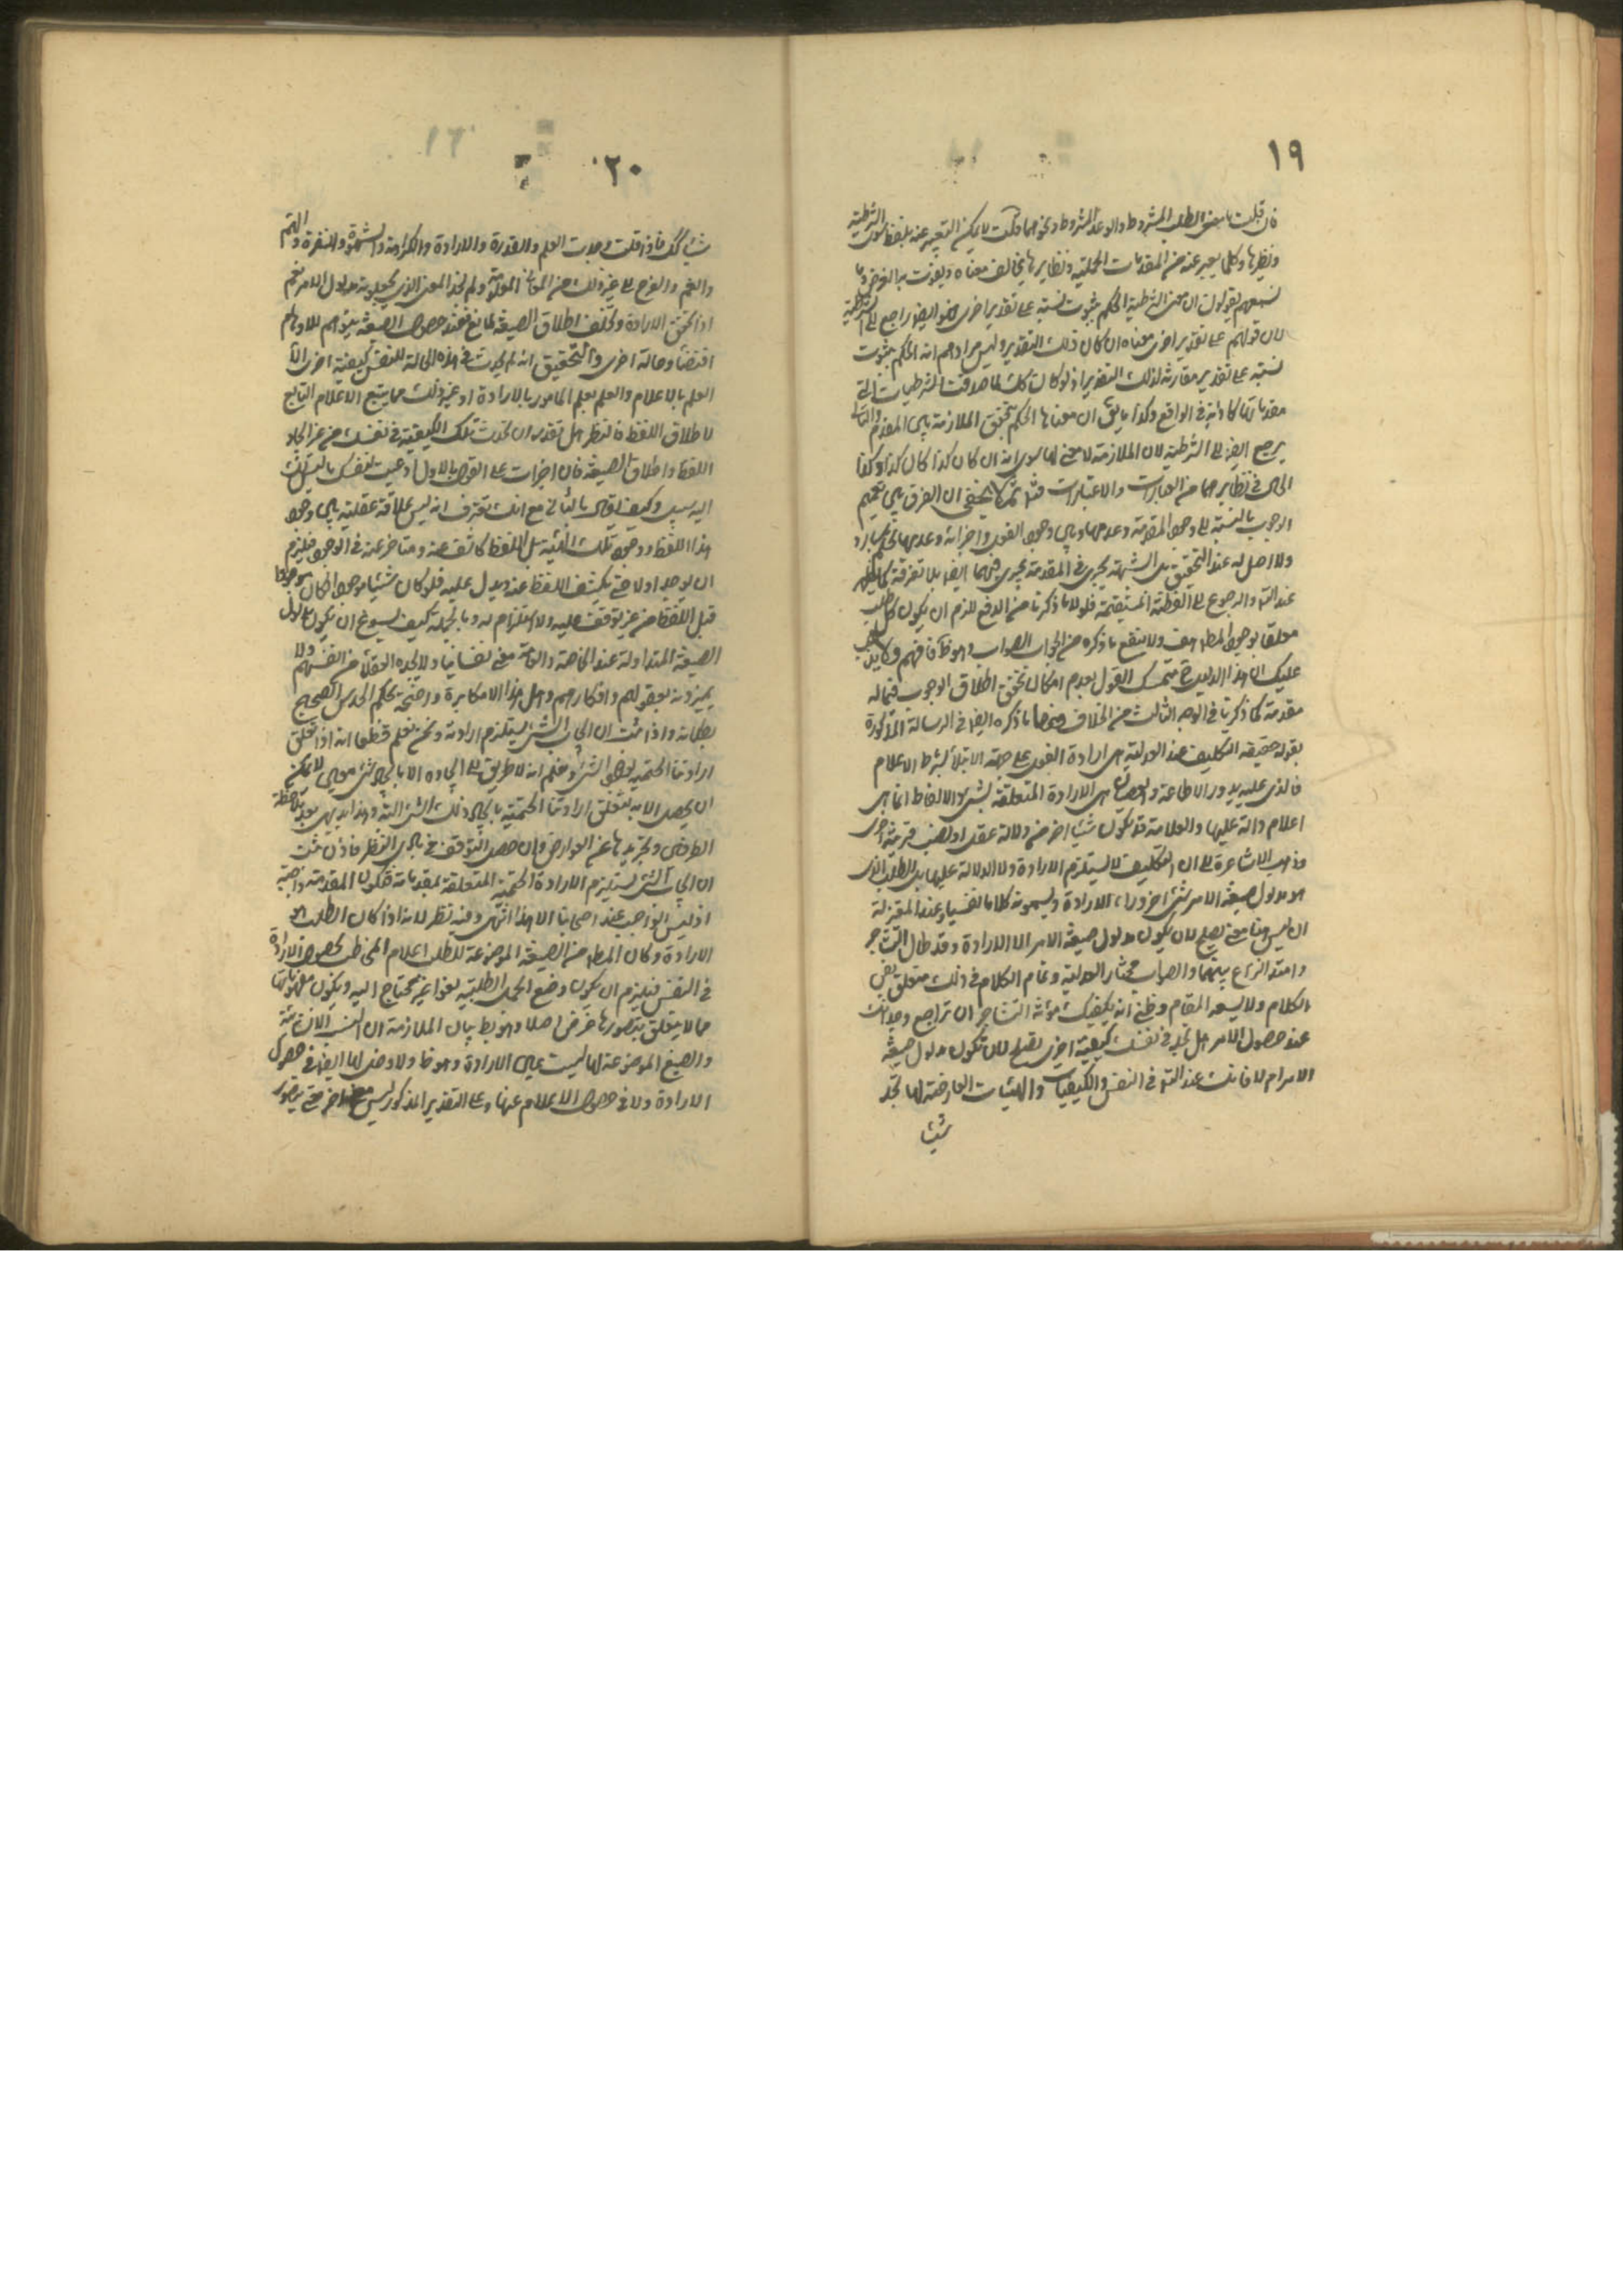 ١٩
فان قلت ما معنى الطلب المشروط والوعد المشروط ونحوهما قلت لا يمكن التعبير عنه بلفظ سوى الشرطية
ونظيرها وكلما يعبر عنه من المقدمات الحملية ونظايرها يخالف معناه ويفوت به الغرض وما
نسمعهم يقولون ان معنى الشرطية الحكم بثبوت نسبة على تقدير اخرى فهو ايضا راجع الى الشرطية
لان قولهم على تقدير اخرى معناه ان كان ذلك التقدير وليس مرادهم انه الحكم بثبوت
نسبة على تقدير مقارنة لذلك التقدير اذ لو كان كذلك لما صدقت الشرطيات التي
مقدماتها كاذبة في الواقع وكذا ما يق ان معناها الحكم بتحقق الملازمة بين المقدم والتالي
يرجع ايضا الى الشرطية لان الملازمة لا معنى لها سوى انه ان كان كذا كان كذا وكذا
الحال في نظايرهما من العبارات والاعتبارات ثم لا يخفى ان الفرق بين تعميم
الوجوب بالنسبة الى وجود المقدمة وعدمها وبين وجود الفعل واجزائه وعدمها تحكم بارد
ولا اصل له عند التحقيق بل الشبهة يجرى في المقدمة يجرى فيهما ايضا بلا تفرقة كما يظهر
عند التأمل والرجوع الى الفطنة المستقيمة فلولا ما ذكرنا من الدفع للزم ان يكون كل طلب
معلقا بوجود المط هف ولا ينفع ما ذكره من الجواب الصواب وهو ظ فافهم ولا يذهب
عليك ان هذا الدليل متمسك القول بعدم امكان تحقق اطلاق الوجوب فيما له
مقدمة كما ذكرنا في الوجه الثالث من الخلاف ومنها ما ذكره ايضا في الرسالة المذكورة
بقوله حقيقة التكليف عند العدلية هي ارادة الفعل على جهة الابتلاء بشرط الاعلام
فالذي عليه يدور الاطاعة والعصيان هي الارادة المتعلقة بشيء والالفاظ انما هي
اعلام دالة عليها والعلامة قد يكون شيئا اخر من دلالة عقل او نصب قرينة اخرى
وذهب الاشاعرة الى ان التكليف لا يستلزم الارادة ولا الدلالة عليها بل الطلب الذي
هو مدلول صيغة الامر شيء اخر وراء الارادة ويسمونه كلاما نفسيا وعند المعتزلة
ان ليس هنا معنى يصلح لان يكون مدلول صيغة الامر الا الارادة وقد طال التشاجر
وامتد النزاع بينهما والصواب مختار العدلية وتمام الكلام في ذلك متعلق بفن
الكلام ولا يسعه المقام وظني انه يكفيك مؤنة التشاجر ان تراجع وجدانك
عند حصول الامر هل تجد في نفسك كيفية اخرى تصلح لان تكون مدلول صيغة
الامر ام لا فانك عند التأمل في النفس والكيفيات والهيئات العارضة لها تجد
شيئا
٢٠
شيئا كك فاذا قلت وجدت العلم والقدرة والارادة والكراهة والشهوة والنفرة والهم
والغم والفرح الى غير ذلك من المعاني المعلومة ولم نجد المعنى الذي يجعلونه مدلول الامر نعم
اذا تحقق الارادة وتخلف اطلاق الصيغة لمانع فعند حصول الصيغة يتوهم للاوهام
اقتضاء وحالة اخرى والتحقيق انه لم يحدث في هذه الحالة للنفس كيفية اخرى الا
العلم بالاعلام والعلم بعلم المامور بالارادة او غير ذلك مما يتبع الاعلام التابع
لاطلاق اللفظ فانظر هل تقدر ان تحدث تلك الكيفية في نفسك من غير ايجاد
اللفظ واطلاق الصيغة فان اجترأت على القول بالاول ادعيت لنفسك ما ليس لك
اليه سبيل وكيف تقول بالثاني مع انك تعترف انه ليس علاقة عقلية بين وجود
هذا اللفظ ووجود تلك الهيئة بل اللفظ كاشف عنه ومتاخر عنه في الوجود فيلزم
ان يوجد اولا حتى يكشف اللفظ عنه ويدل عليه فلو كان شيئا موجودا لكان موجودا
قبل اللفظ من غير توقف عليه ولا استلزام له وبالجملة كيف يسوغ ان يكون مدلول
الصيغة المتداولة عند الخاصة والعامة معنى نفسانيا ولا يجده العقلاء من انفسهم ولا
يميزونه بعقولهم وافكارهم وهل هذا الا مكابرة واضحة يحكم الحدس الصحيح
ببطلانه واذا ثبت ان ايجاب الشيء يستلزم ارادته ونحن نعلم قطعا انه اذا تعلق
ارادتنا الحتمية بوجود الشيء ونعلم انه لا طريق الى ايجاده الا بايجاد شيء معين لا يمكن
ان يحصل الا به تتعلق ارادتنا الحتمية بايجاد ذلك الشيء البتة وهذا بديهي بعد ملاحظة
الطرفين وتجريدها عن العوارض وان حصل التوقف في بادي النظر فاذن ثبت
ان ايجاب الشيء يستلزم الارادة الحتمية المتعلقة بمقدماته فتكون المقدمة واجبة
اذ ليس الواجب عند اصحابنا الا هذا انتهى وفيه نظر لانه اذا كان الطلب هو
الارادة وكان المط من الصيغة الموضوعة للطلب اعلام المخاطب بحصول الارادة
في النفس فيلزم ان يكون وضع الجمل الطلبية لغوا غير محتاج اليه ويكون مفهوماتها
مما لا يتعلق بتصورها غرض اصلا وهو بط بيان الملازمة ان النسب الانشائية
والصيغ الموضوعة لها ليست عين الارادة وهو ظ ولا دخل لها ايضا في حصول
الارادة ولا في حصول الاعلام عنها وعلى التقدير المذكور ليس معنى اخر حتى يتصور